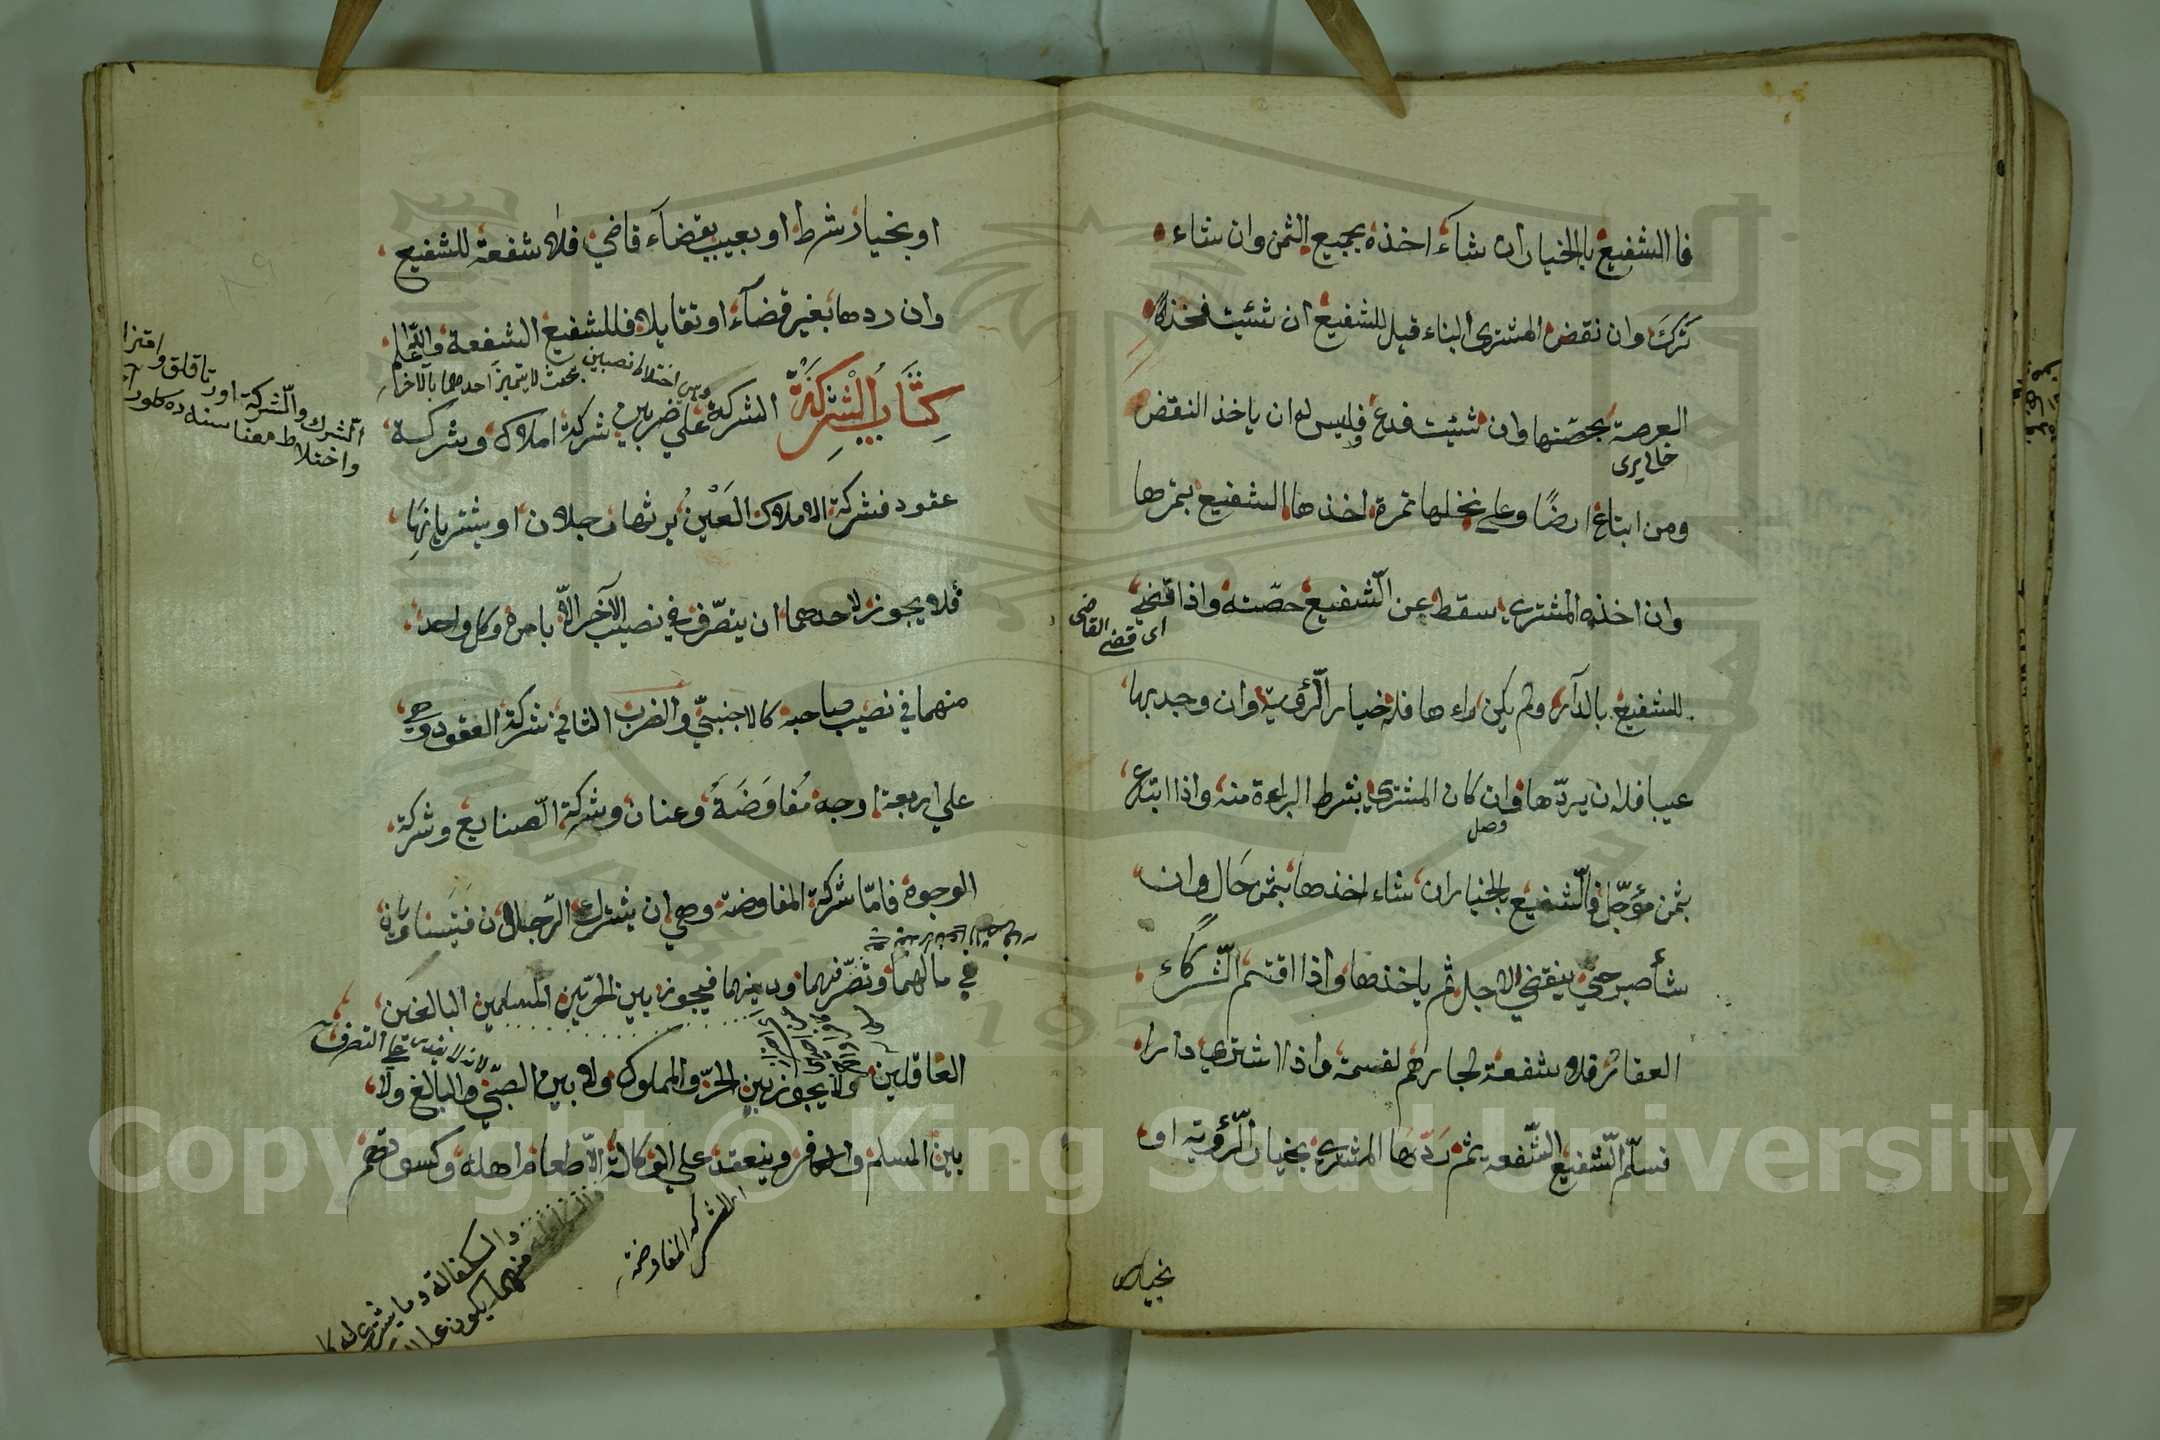 فاالشفيع بالخيار ان شآء اخذه بجميع الثمن وان شاء
ترك وان نقض المشترى البناء قيل للشفيع ان شئت فخذ
العرصة بحصّتها وان شئت فدع وليس له ان ياخذ النقض
خالى يرى
ومن ابتاع ارضًا وعلى نخلها ثمرة اخذها الشفيع بثمرها
وان اخذه المشترى سقط عن الشفيع حصّته واذا قضى
اى قضى القاضى
للشفيع بالدآر ولم يكن راءها فله خيار الرّؤية وان وجد بها
عيبا فله ان يردّها وان كان المشترى بشرط البراءة منه واذا ابتاع
وصل
بثمن مؤجّل فاالشّفيع بالخيار ان شاء اخذها بثمن حال وان
شأ صبر حتى ينقضى الاجل ثم ياخذها واذا اقتسم الشّركاء
العقار فلا شفعة لجارهم لقسمة واذا اشترى دارا
فسلّم الشّفيع الشّفعه ثم ردّها المشترى بخيار الرّؤية او
بخيار
او بخيار شرط او بعيب بقضآء قاضى فلا شفعة للشفيع
وان ردها بغير قضآء او تقايلا فللشفيع الشفعة والله اعلم
وهى اختلاط نصيبين بحيث لا يتميز احدهما بالاخر
كتاب الشركة الشركة على ضربين شركة املاك وشركة
عقود فشركة الاملاك العين يرثها رجلان او يشتريانها
فلا يجوز لاحدهما ان يتصّرف فى نصيب الآخر الّا بامره وكل واحد
منهما فى نصيب صاحبه كالاجنبىّ والضرب الثانى شركة العقود وهى
على اربعة اوجه مُفاوَضَةً وعنان وشركة الصّنايع وشركة
الوجوه فامّا شركة المفاوضة وهى ان يشترك الرّجلان فيتساويان
فى مالهما وتصّرفهما ودينهما فيجوز بين الحرّين المسلمين البالغين
العاقلين ولا يجوز بين الحرّ والمملوك ولا بين الصبّى والبالغ ولا
بين المسلم والكافر وينعقد على الوكالة الّا طعام اهله وكسوتهم
الشركة المفاوضة
والكفالة وما يشترى
منهما يكون على